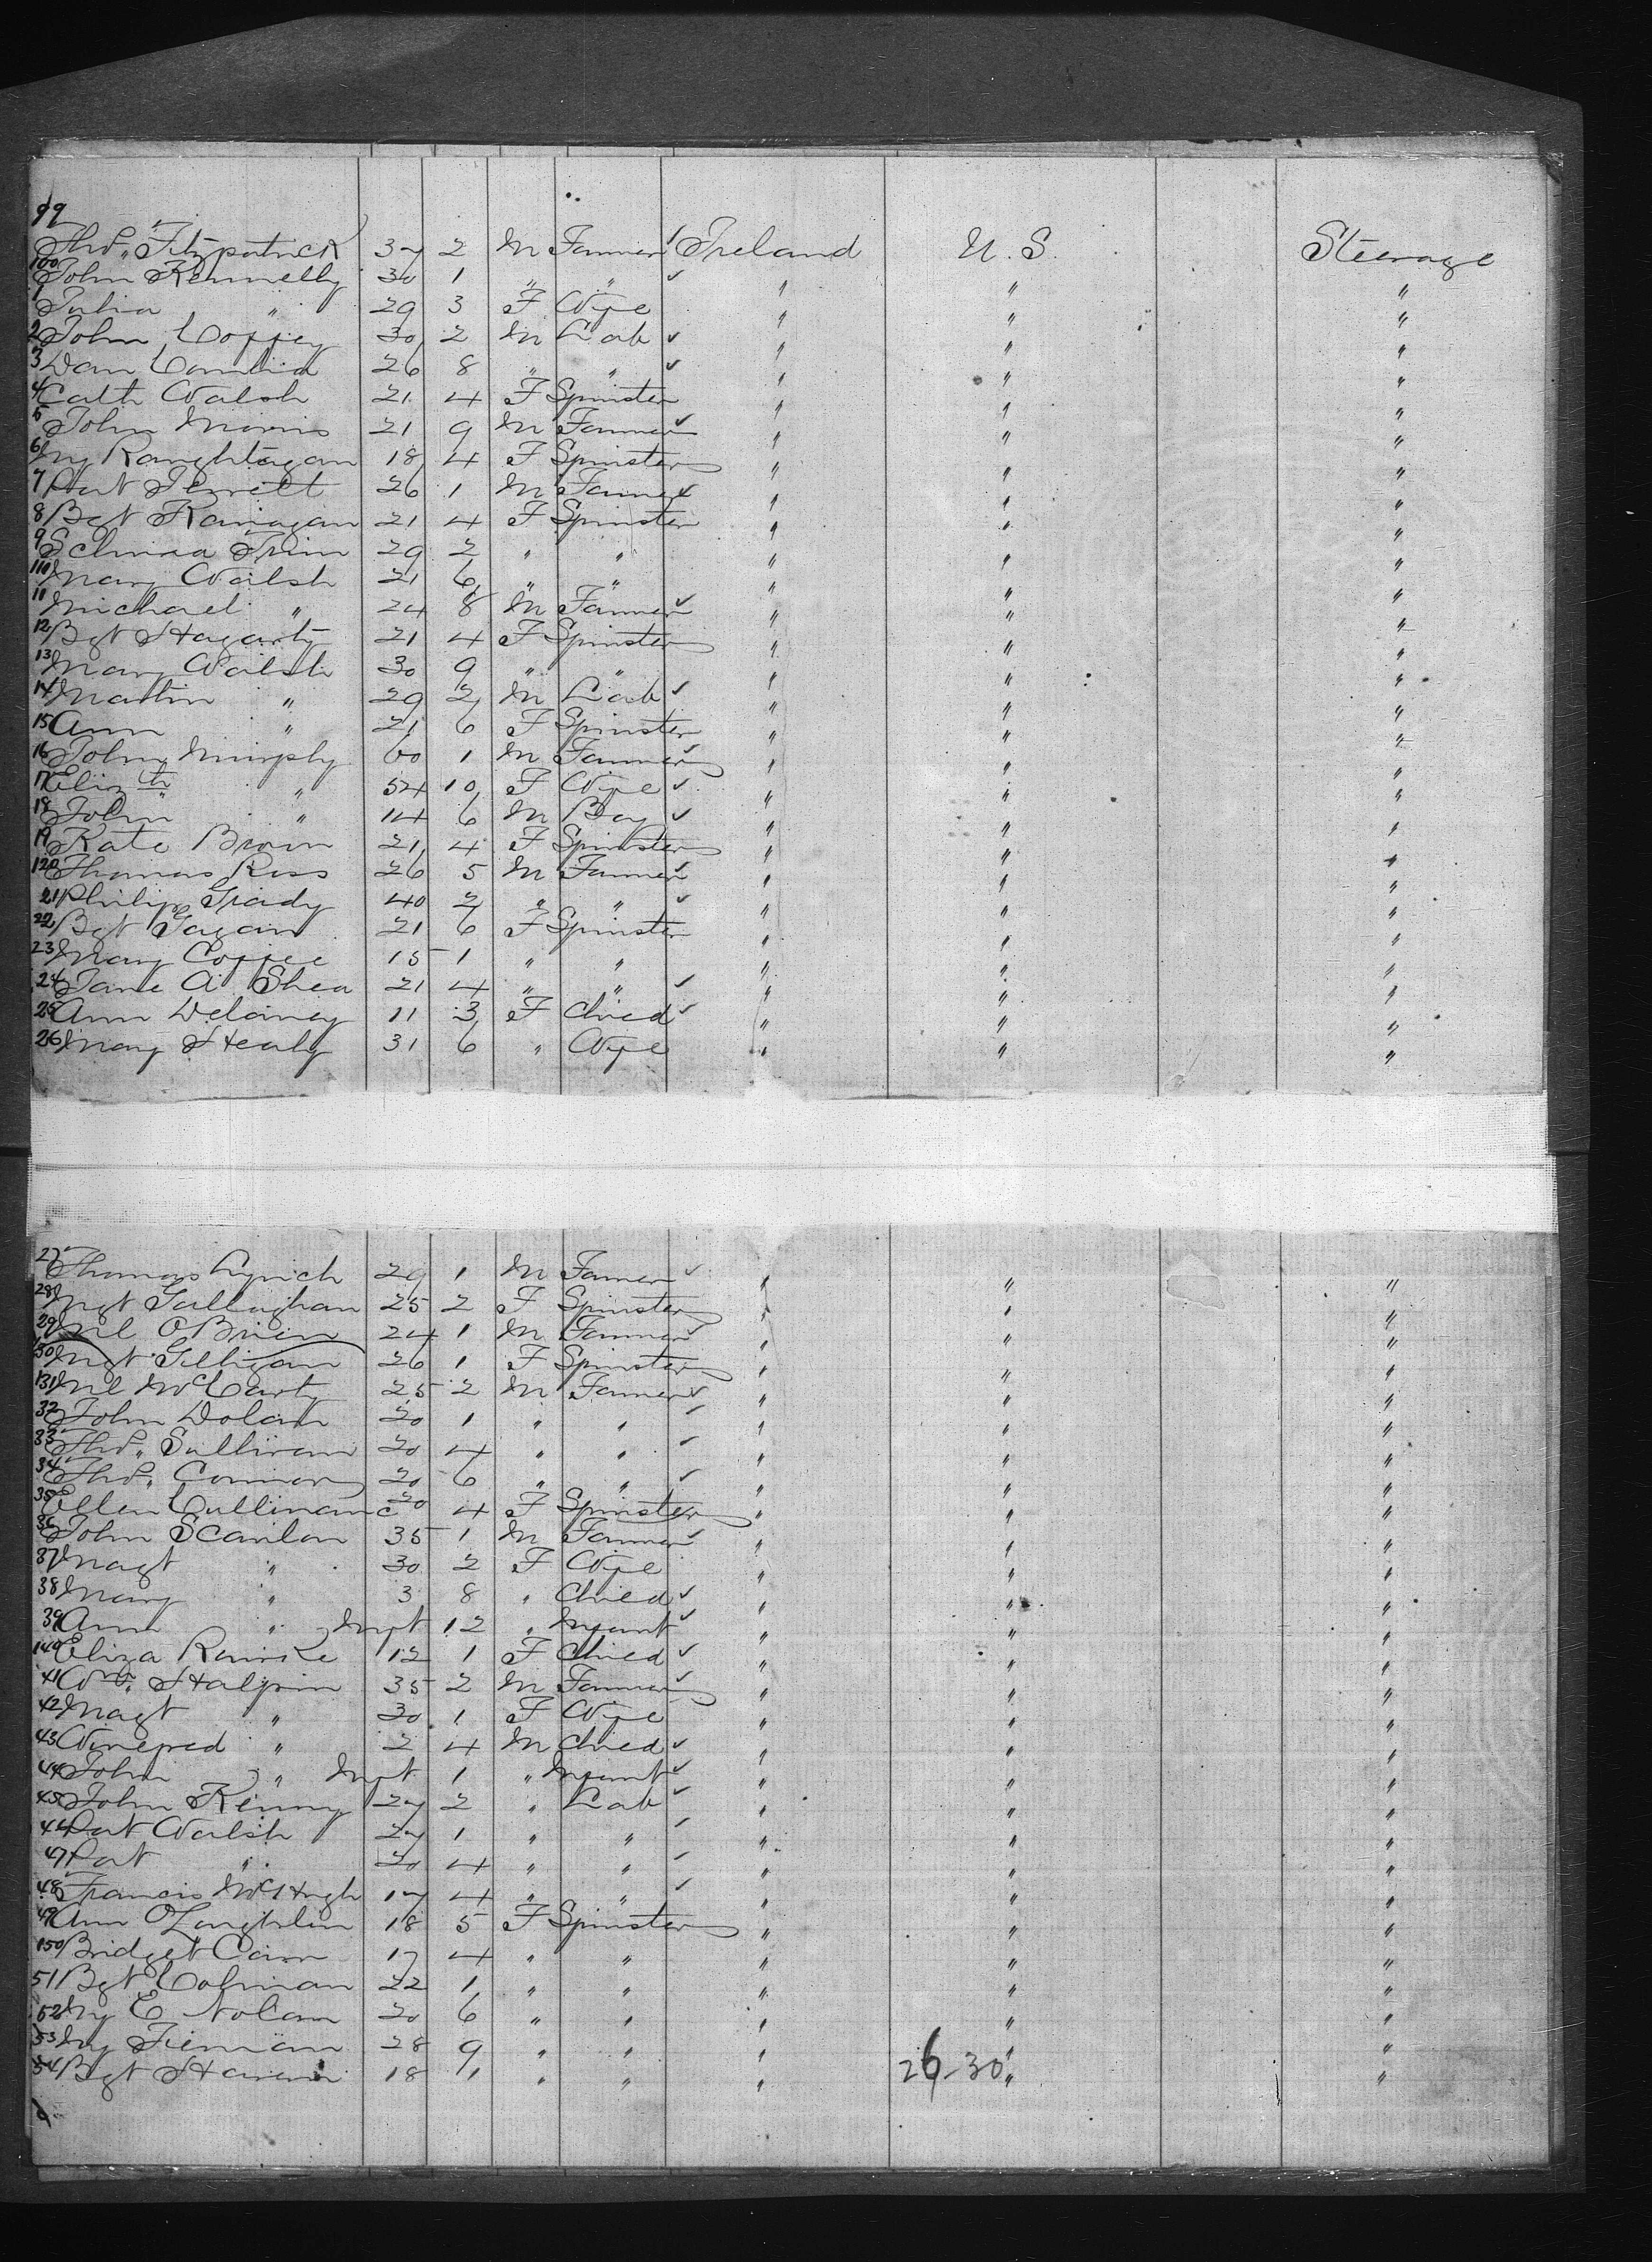 99 Thos. Fitzpatrick 37 2 M Farmer Ireland U.S. Steerage
100 John Kennelly 30 1 " " " " "
1 Julia " 29 3 F Wife " " "
2 John Coffey 30 2 M Lab " " "
3 Dan 26 8 " " " " "
4 Cath Walsh 21 4 F Spinster " " "
5 John Morris 21 9 M Farmer " " "
6 My 18 4 F Spinster " " "
7 Pat 26 1 M Farmer " " "
8 Bgt 21 4 F Spinster " " "
9 Selvina 29 2 " " " " "
110 Mary Walsh 21 6 " " " " "
11 Michael " 24 8 M Farmer " " "
12 Bgt Hagarty 21 4 F Spinster " " "
13 Mary Walsh 30 9 " " " " "
14 Martin " 29 2 M Lab " " "
15 Ann " 21 6 F Spinster " " "
16 John Murphy 60 1 M Farmer " " "
17 Elizth " 54 10 F Wife " " "
18 John " 14 6 M Boy " " "
19 Kate Brown 21 4 F Spinster " " "
120 Thomas Ross 26 5 M Farmer " " "
21 Philip Grady 40 2 " " " " "
22 Bgt Fagan 21 6 F Spinster " " "
23 Mary Coffee 15 1 " " " " "
24 Jane A. Shea 21 4 " " " " "
25 Ann Delaney 11 3 F Child " " "
26 Mary Healy 31 6 " Wife " " "
27 Thomas Lynch 29 1 M Farmer " " "
28 Mgt Gallaghan 25 2 F Spinster " " "
29 Ml O'Brien 24 1 M Farmer " " "
130 Mgt Gilligan 26 1 F Spinster " " "
131 Ml McCarty 25 2 M Farmer " " "
32 John Dolan 20 1 " " " " "
33 Thos. Sullivan 20 4 " " " " "
34 Thos. Connor 20 6 " " " " "
35 Ellen Cullinane 20 4 F Spinster " " "
36 John Scanlan 35 1 M Farmer " " "
37 Magt " 30 2 F Wife " " "
38 Mary " 3 8 " Child " " "
39 Ann " Inft 12 " Infant " " "
140 Eliza Rourke 12 1 F Child " " "
41 Wm. Halpin 35 2 M Farmer " " "
42 Magt " 30 1 F Wife " " "
43 Winefred " 2 4 M Child " " "
44 John " Inft 1 " Infant " " "
45 John Kenny 27 2 " Lab " " "
46 Pat Walsh 27 1 " " " " "
47 Pat " 20 4 " " " " "
48 Francis McHugh 17 4 " " " " "
49 Ann O'Loughlin 18 5 F Spinster " " "
150 Bridget Cain 17 4 " " " " "
51 Bgt Colman 22 1 " " " " "
52 My E Nolan 20 6 " " " " "
53 My 28 9 " " " " "
54 Bgt 18 11 " " " 26-30 " "